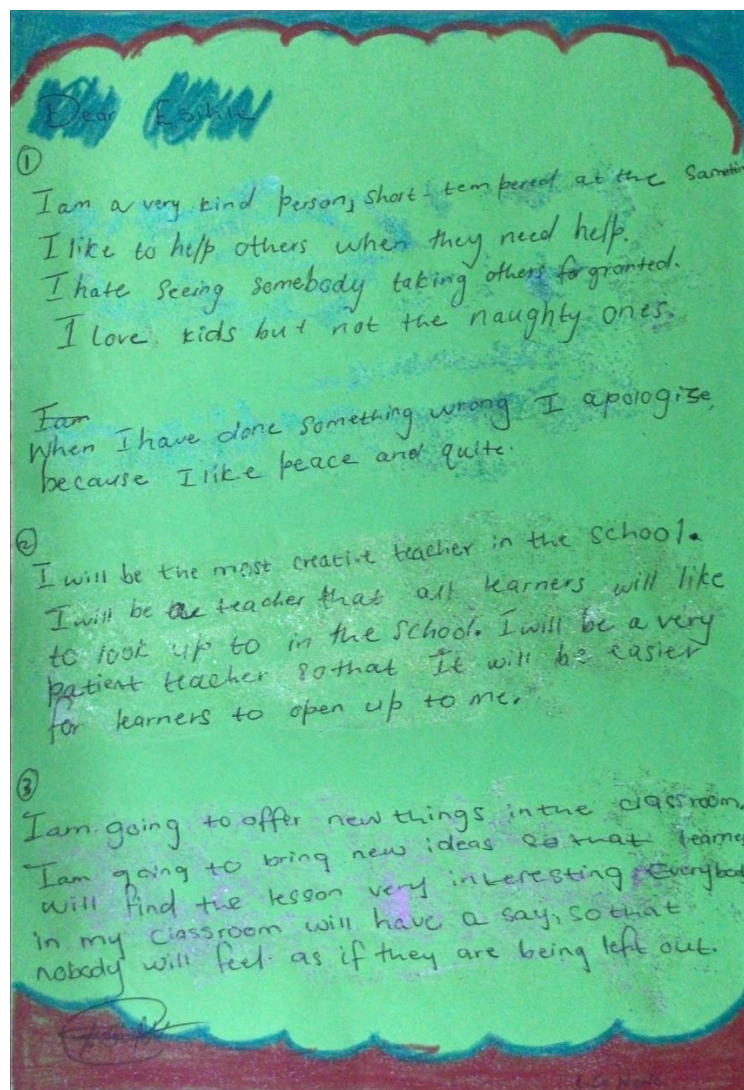 Dear
①
I am a very kind person, short tempered at the Sametim
I like to help others when they need help.
I hate seeing somebody taking others for granted.
I love kids but not the naughty ones.
I am
When I have done something wrong I apologise,
because I like peace and quite.
②
I will be the most creative teacher in the school.
I will be a teacher that all learners will like
to look up to in the school. I will be a very
patient teacher so that It will be easier
for learners to open up to me.
③
I am going to offer new things in the classroom.
I am going to bring new ideas so that learne
will find the lesson very interesting. Everybod
in my classroom will have a say, so that
nobody will feel as if they are being left out.